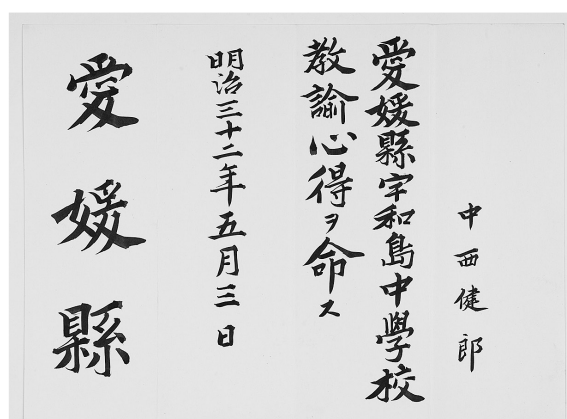 中西健郎
愛媛縣宇和島中學校
教諭心得ヲ命ス
明治三十二年五月三日
愛媛縣